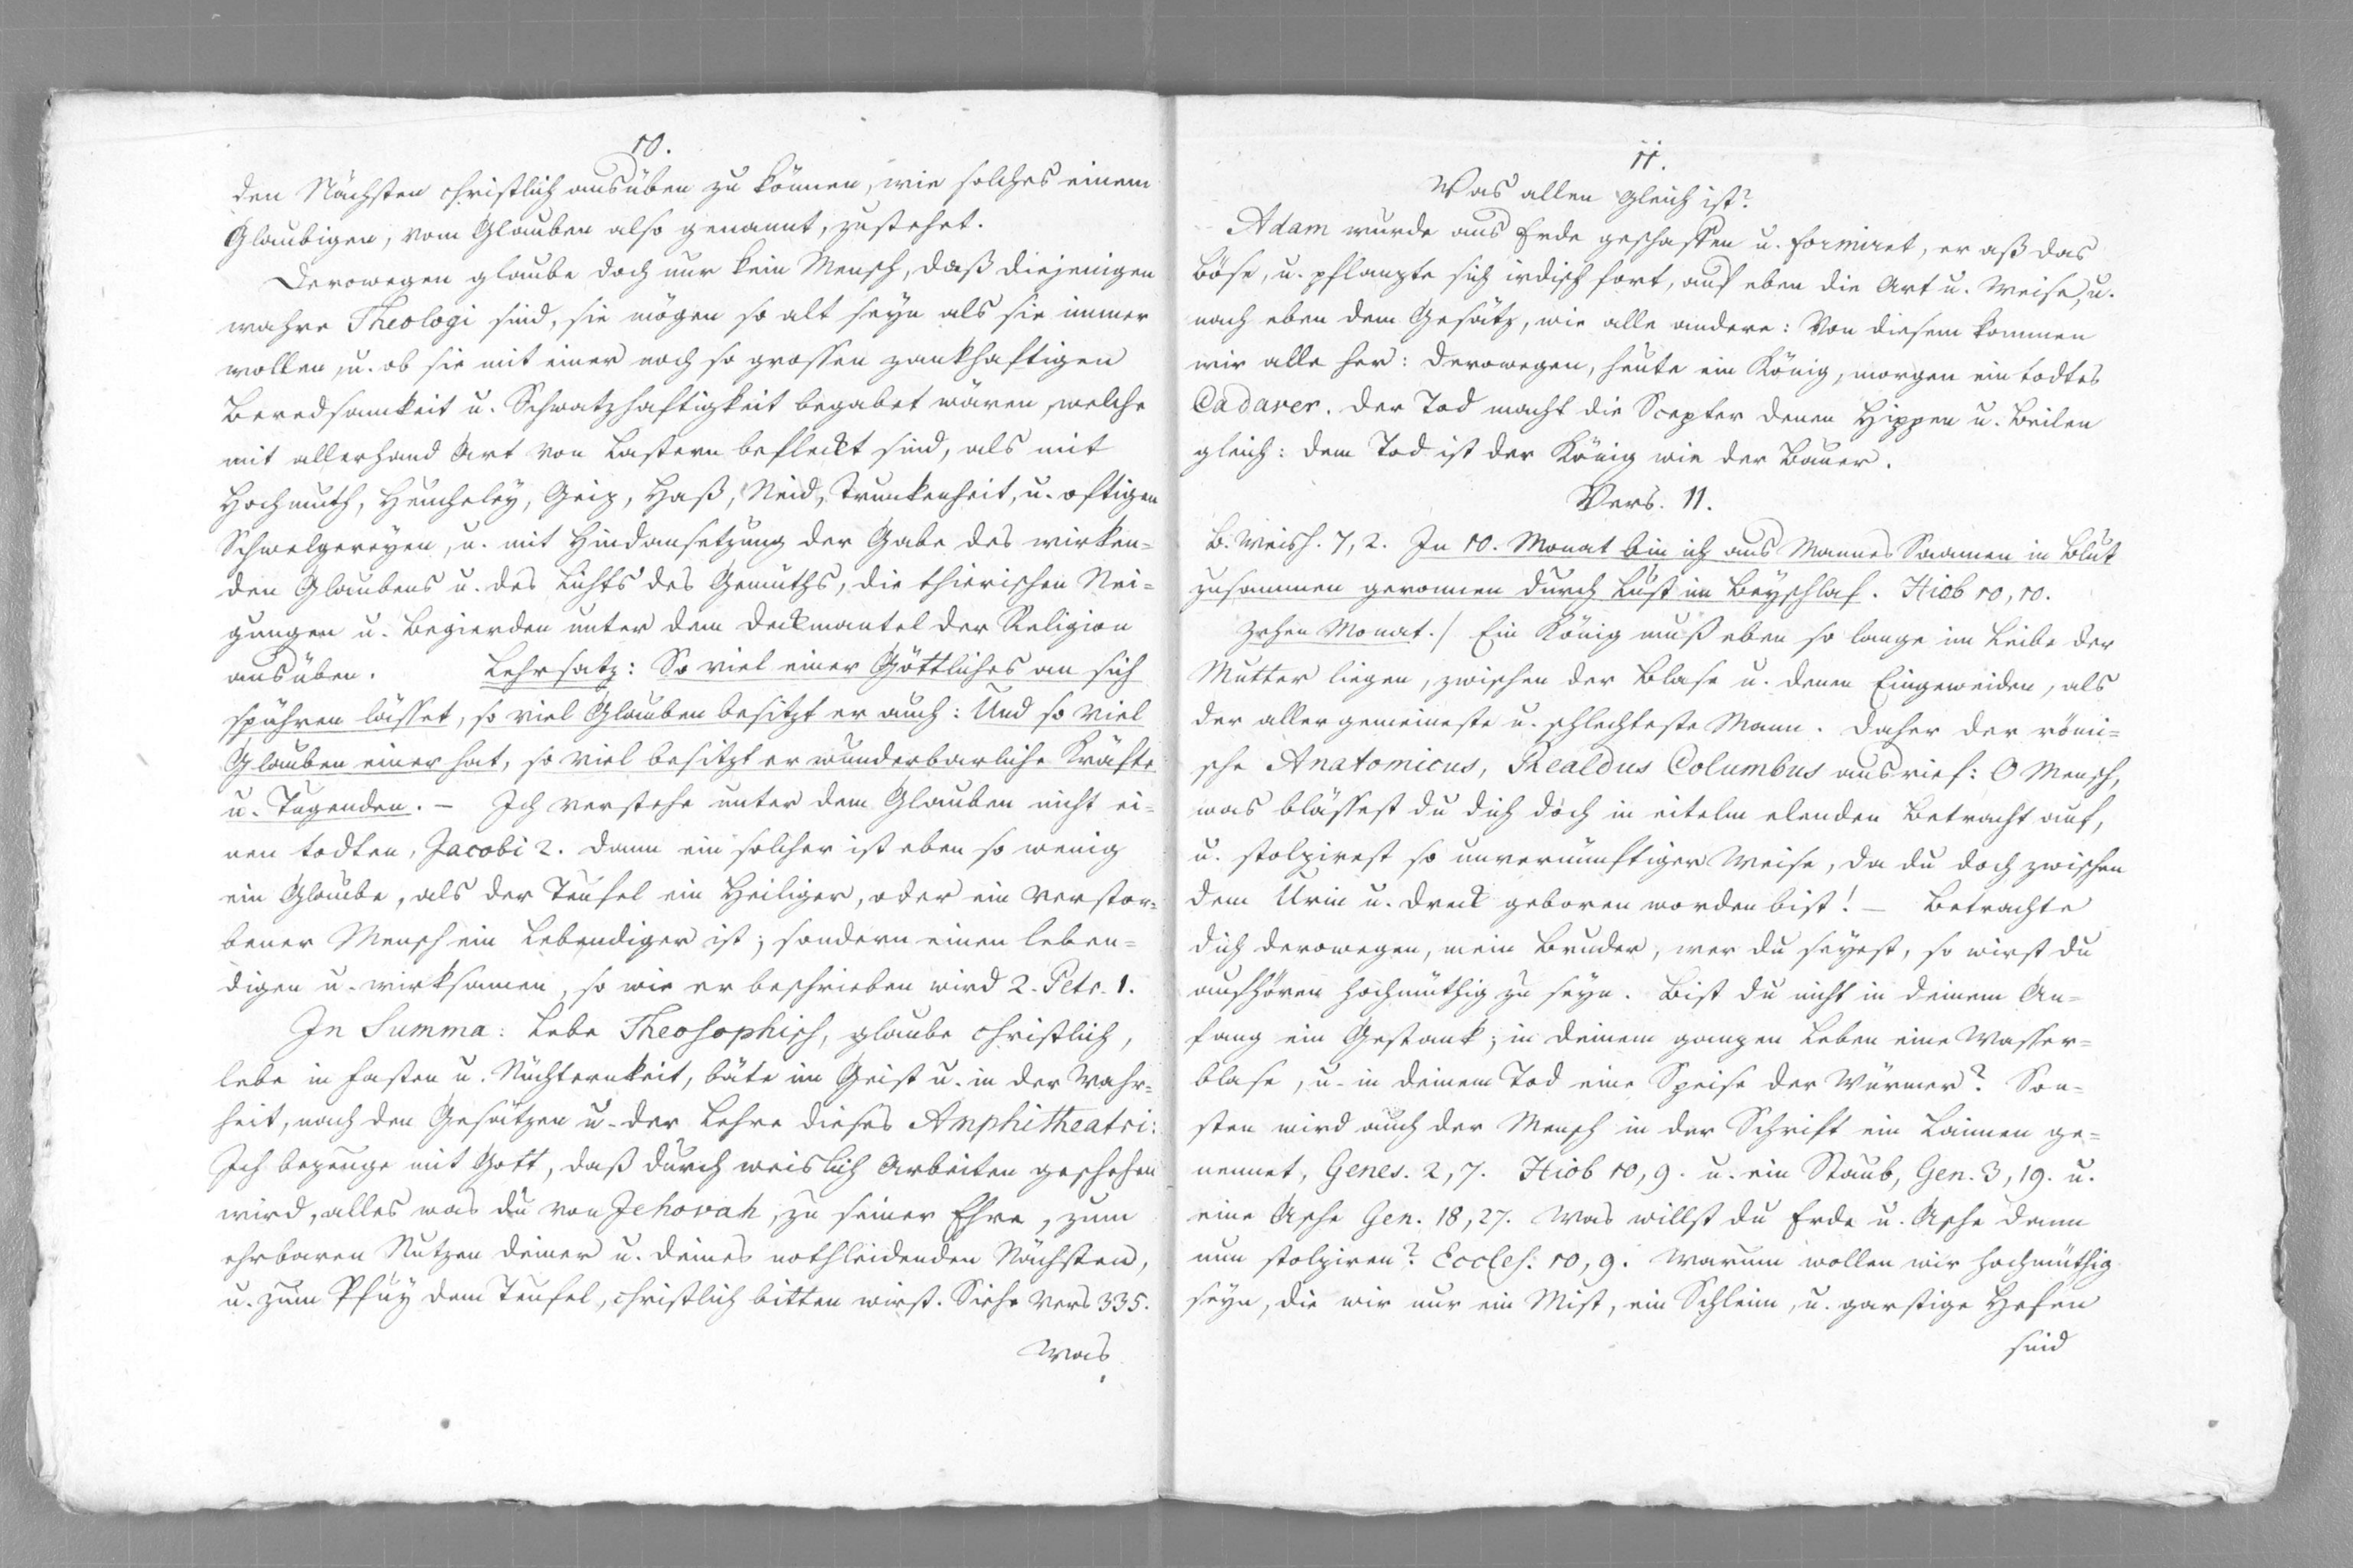 10.
den Nächsten christlich ausüben zu können, wie solches einem
Glaubigen, vom Glauben also genannt, zustehet.
Derowegen glaube doch nur kein Mensch, daß diejenigen
wahre Theologi sind, sie mögen so alt seyn als sie immer
wollen, u. ob sie mit einer noch so grossen zankhaftigen
Beredsamkeit u. Schwatzhaftigkeit begabet wären, welche
mit allerhand Art von Lastern befleckt sind, als mit
Hochmuth, Heucheley, Geiz, Haß, Neid, Trunkenheit, u. oftigen
Schwelgereyen, u. mit Hindansetzung der Gabe des wirken=
den Glaubens u. des Lichts des Gemüths, die thierischen Nei=
gungen u. Begierden unter dem Deckmantel der Religion
ausüben. Lehrsatz: So viel einer Göttliches an sich
spühren lässet, so viel Glauben besitzt er auch: Und so viel
Glauben einer hat, so viel besitzt er wunderbarliche Kräfte
u. Tugenden. – Ich verstehe unter dem Glauben nicht ei=
nen todten, Jacobi 2. dann ein solcher ist eben so wenig
ein Glaube, als der Teufel ein Heiliger, oder ein verstor=
bener Mensch ein Lebendiger ist; sondern einen leben=
digen u. wirksamen, so wie er beschrieben wird 2. Petr. 1.
In Summa: Lebe Theosophisch, glaube christlich,
lebe in Fasten u. Nüchternkeit, bäte im Geist u. in der Wahr=
heit, nach den Gesätzen u. der Lehre dieses Amphitheatri:
Ich bezeuge mit Gott, daß durch weislich Arbeiten geschehen
wird, alles was du von Jehovah, zu seiner Ehre, zum
ehrbaren Nutzen deiner u. deines nothleidenden Nächsten,
u. zum Pfuy dem Teufel, christlich bitten wirst. Siehe Vers 335.
Was
11.
Was allen gleich ist?
Adam wurde aus Erde geschaffen u. formiret, er aß das
Böse, u. pflanzte sich irdisch fort, auf eben die Art u. Weise, u.
nach eben dem Gesätz, wie alle andere: Von diesem kommen
wir alle her: derowegen, heute ein König, morgen ein todtes
Cadaver. Der Tod macht die Scepter denen Hippen u. Beilen
gleich: dem Tod ist der König wie der Bauer.
Vers. 11.
B. Weish. 7, 2. In 10. Monat bin ich aus Mannes Saamen in Blut
zusammen geronnen durch Lust im Beyschlaf. Hiob 10, 10.
Zehen Monat./ Ein König muß eben so lange im Leibe der
Mutter liegen, zwischen der Blase u. denen Eingeweiden, als
der aller gemeineste u. schlechteste Mann. Daher der römi=
sche Anatomicus, Realdus Columbus ausrief: O Mensch,
was blässest du dich doch in eitelm elenden Betracht auf,
u. stolzirest so unvernünftiger Weise, da du doch zwischen
dem Urin u. Dreck geboren worden bist! – Betrachte
dich derowegen, mein Bruder, wer du seyest, so wirst du
aufhören hochmüthig zu seyn. Bist du nicht in deinem An=
fang ein Gestank; in deinem ganzen Leben eine Wasser=
blase, u. in deinem Tod eine Speise der Würmer? Son=
sten wird auch der Mensch in der Schrift ein Laimen ge=
nennet, Genes. 2, 7. Hiob 10, 9. u. ein Staub, Gen. 3, 19. u.
eine Asche Gen. 18, 27. Was willst du Erde u. Asche dann
nun stolziren? Eccles: 10, 9. Warum wollen wir hochmüthig
seyn, die wir nur ein Mist, ein Schleim, u. garstige Hefen
sind